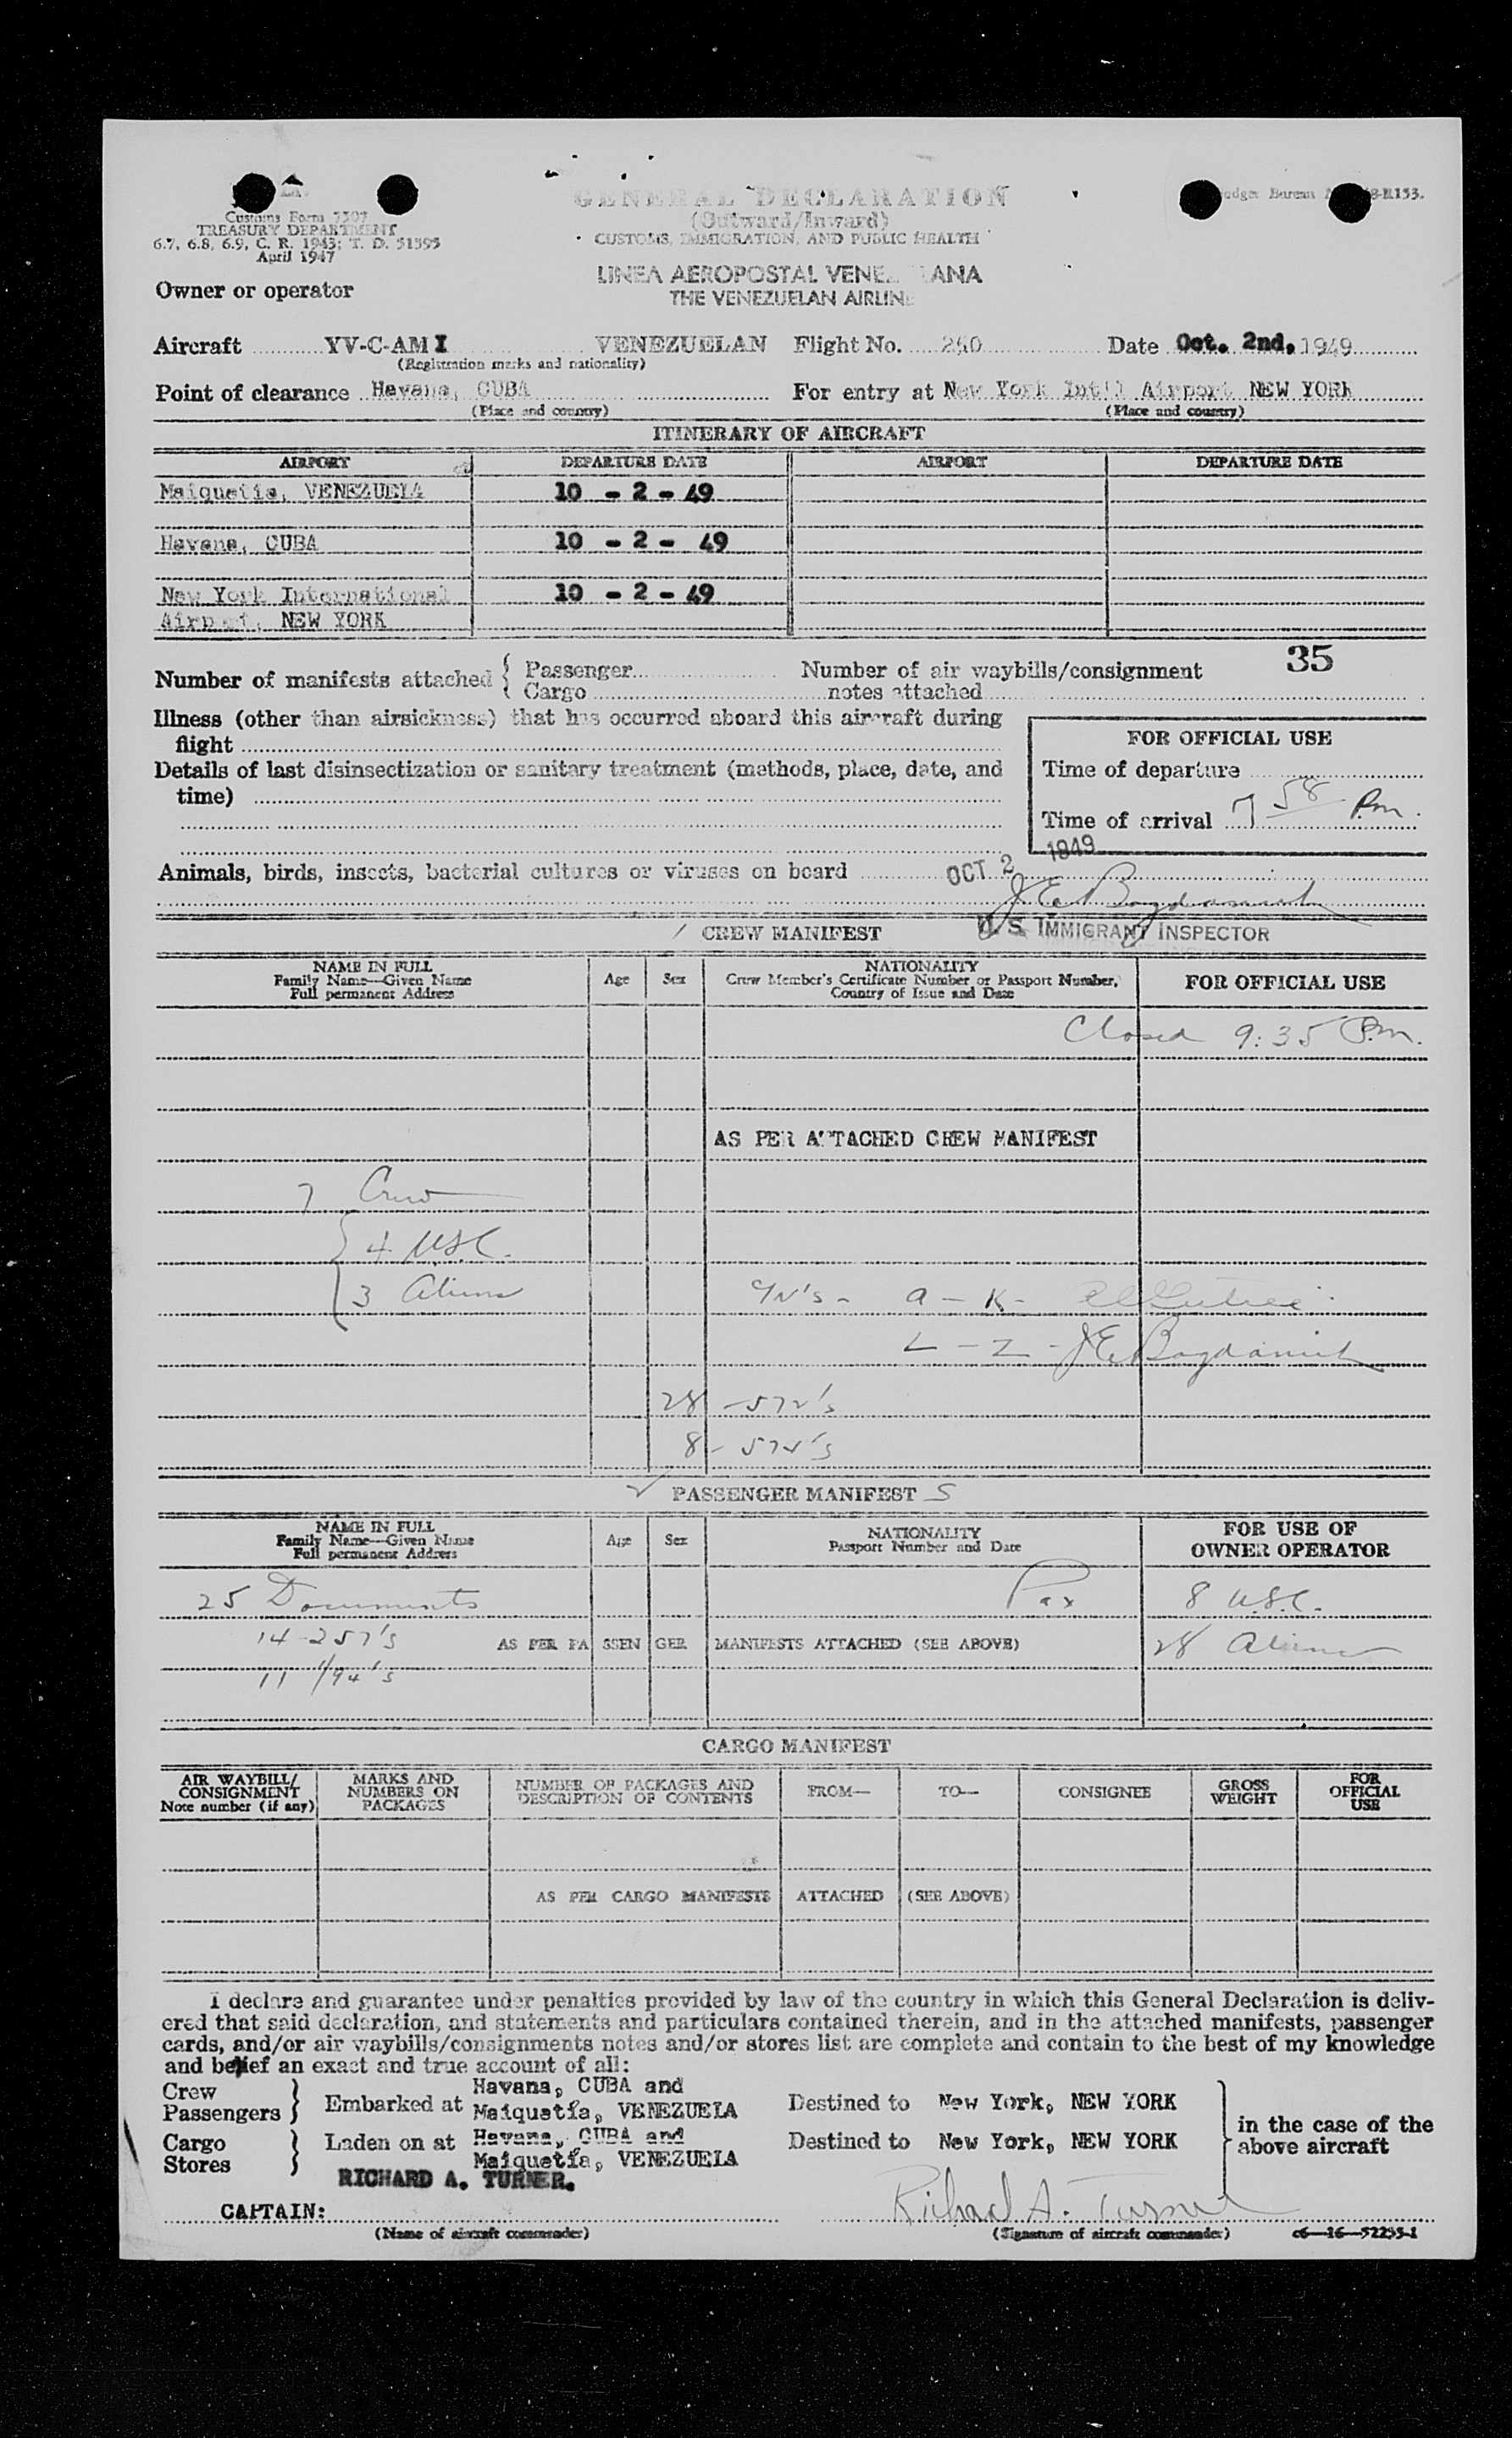 Customs Form 7507
TREASURY DEPARTMENT
6.7, 6.8, 6.9, C. R. 1943; T. D. 51595
April 1947
GENERAL DECLARATION
(Outward/Inward)
CUSTOMS, IMMIGRATION, AND PUBLIC HEALTH
LINEA AEROPOSTAL VENE ANA
THE VENEZUELAN AIRLIN
Owner or operator
Aircraft YV-C-AMI VENEZUELAN Flight No. 250 Date Oct. 2nd, 1949
(Registration marks and nationality)
Point of clearance Havana, CUBA For entry at New York Int'l Airport NEW YORK
(Place and country) (Place and country)
ITINERARY OF AIRCRAFT
AIRPORT DEPARTURE DATE AIRPORT DEPARTURE DATE
Maiquetia, VENEZUELA 10 - 2 - 49
Havana, CUBA 10 - 2 - 49
New York International 10 - 2 - 49
Airport, NEW YORK
Number of manifests attached { Passenger Number of air waybills/consignment 35
Cargo notes attached
Illness (other than airsickness) that has occurred aboard this aircraft during
flight
FOR OFFICIAL USE
Details of last disinsectization or sanitary treatment (methods, place, date, and
time)
Time of departure
Time of arrival 7 58 P.m.
Animals, birds, insects, bacterial cultures or viruses on board OCT 2 1949
U. S. IMMIGRANT INSPECTOR
CREW MANIFEST
NAME IN FULL
Family Name—Given Name
Full permanent Address
Age Sex
NATIONALITY
Crew Member's Certificate Number or Passport Number,
Country of Issue and Date
FOR OFFICIAL USE
Closed 9:35 P.m.
AS PER ATTACHED CREW MANIFEST
7 Crew
4 USC.
3 Aliens
a - K -
L - Z - J E Bogdanich
28 - 572's
8 - 575's
PASSENGER MANIFEST S
NAME IN FULL
Family Name—Given Name
Full permanent Address
Age Sex
NATIONALITY
Passport Number and Date
FOR USE OF
OWNER OPERATOR
25 Documents Pax 8 U.S.C.
14 - 257's AS PER PASSENGER MANIFESTS ATTACHED (SEE ABOVE) 28 Aliens
11 I/94's
CARGO MANIFEST
AIR WAYBILL/
CONSIGNMENT
Note number (if any)
MARKS AND
NUMBERS ON
PACKAGES
NUMBER OF PACKAGES AND
DESCRIPTION OF CONTENTS
FROM— TO— CONSIGNEE
GROSS
WEIGHT
FOR
OFFICIAL
USE
AS PER CARGO MANIFESTS ATTACHED (SEE ABOVE)
I declare and guarantee under penalties provided by law of the country in which this General Declaration is deliv-
ered that said declaration, and statements and particulars contained therein, and in the attached manifests, passenger
cards, and/or air waybills/consignments notes and/or stores list are complete and contain to the best of my knowledge
and belief an exact and true account of all:
Crew
Passengers } Embarked at Havana, CUBA and
Maiquetía, VENEZUELA Destined to New York, NEW YORK
Cargo
Stores } Laden on at Havana, CUBA and
Maiquetía, VENEZUELA Destined to New York, NEW YORK
in the case of the
above aircraft
RICHARD A. TURNER.
CAPTAIN: Richard A. Turner
(Name of aircraft commander) (Signature of aircraft commander) c6—16—52255-1